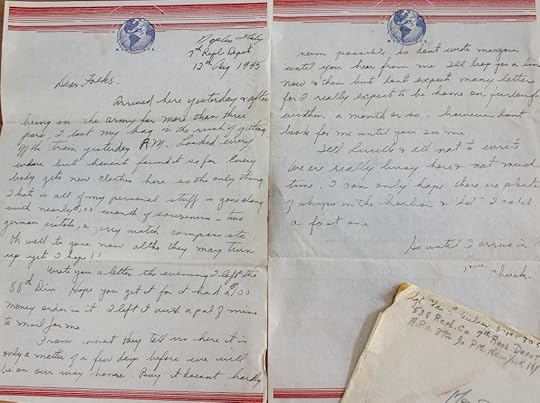 Naples Italy
7th Repl Depot
12th Aug 1945
Dear Folks.
Arrived here yesterday & after
being in the army for more than three
years I lost my bag in the rush of getting
off the train yesterday A.M. Looked every
where but havent found it so far. Every
body gets new clothes here so the only thing
That is all of my personal stuff is gone along
with nearly 00 worth of souvenirs - two
german pistols, a jerry watch compass etc.
Oh well its gone now altho they may turn
up yet I hope!!
Wrote you a letter the evening I left the
88th Div. Hope you get it for it had a $100
money order in it. I left it with a pal of mine
to mail for me.
From what they tell us here it is
only a matter of a few days before we will
be on our way home. Boy it doesnt hardly
seem possible, so dont write me again
until you hear from me Ill drop you a line
now & then but dont expect many letters
for I really expect to be home on furlough
within a month or so. however dont
look for me until you see me
Tell & all not to write
We are really busy here & not much
time. I can only hope there are plenty
of ships in the harbor & I catch
a fast one
So until I arrive in
Chuck.
Repl. Co 7th Repl Depot
A.P.O. 372 % P.M. New York N.Y.